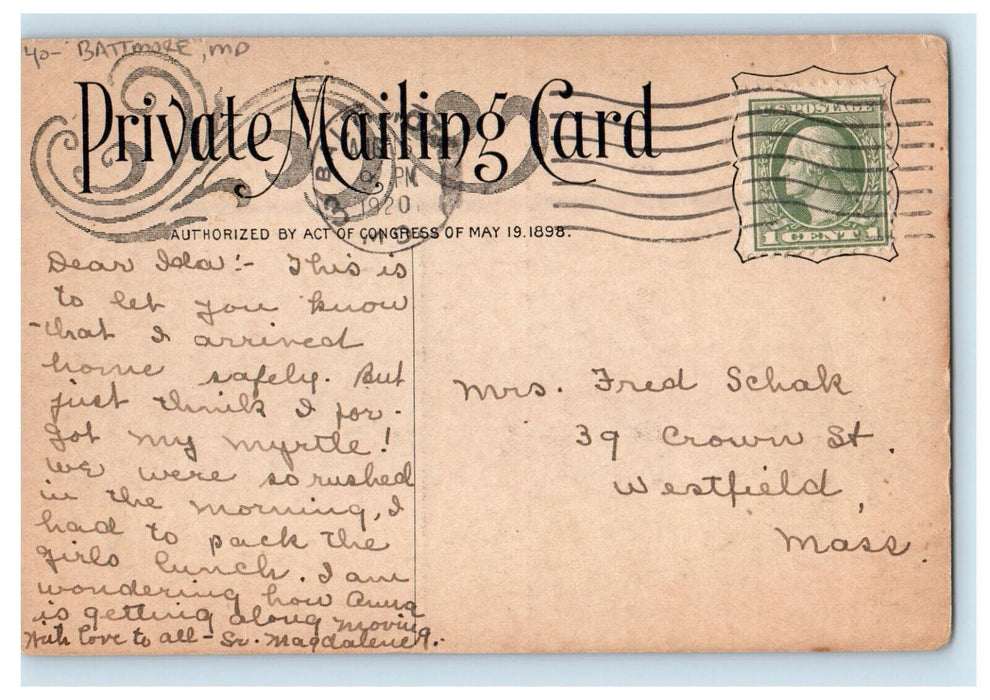 40- BATTMORE, MD
Private Mailing Card
PM
1920
AUTHORIZED BY ACT OF CONGRESS OF MAY 19.1898.
U.S. POSTAGE
1 CENT 1
Dear Ida!- This is
to let you know
that I arrived
home safely. But
just think I for-
got my myrtle!
we were so rushed
in the morning, I
had to pack the
girls lunch. I am
wondering how Anna
is getting along moving
With love to all - Sr. Magdalene
Mrs. Fred Schak
39 Crown St.
Westfield,
Mass.